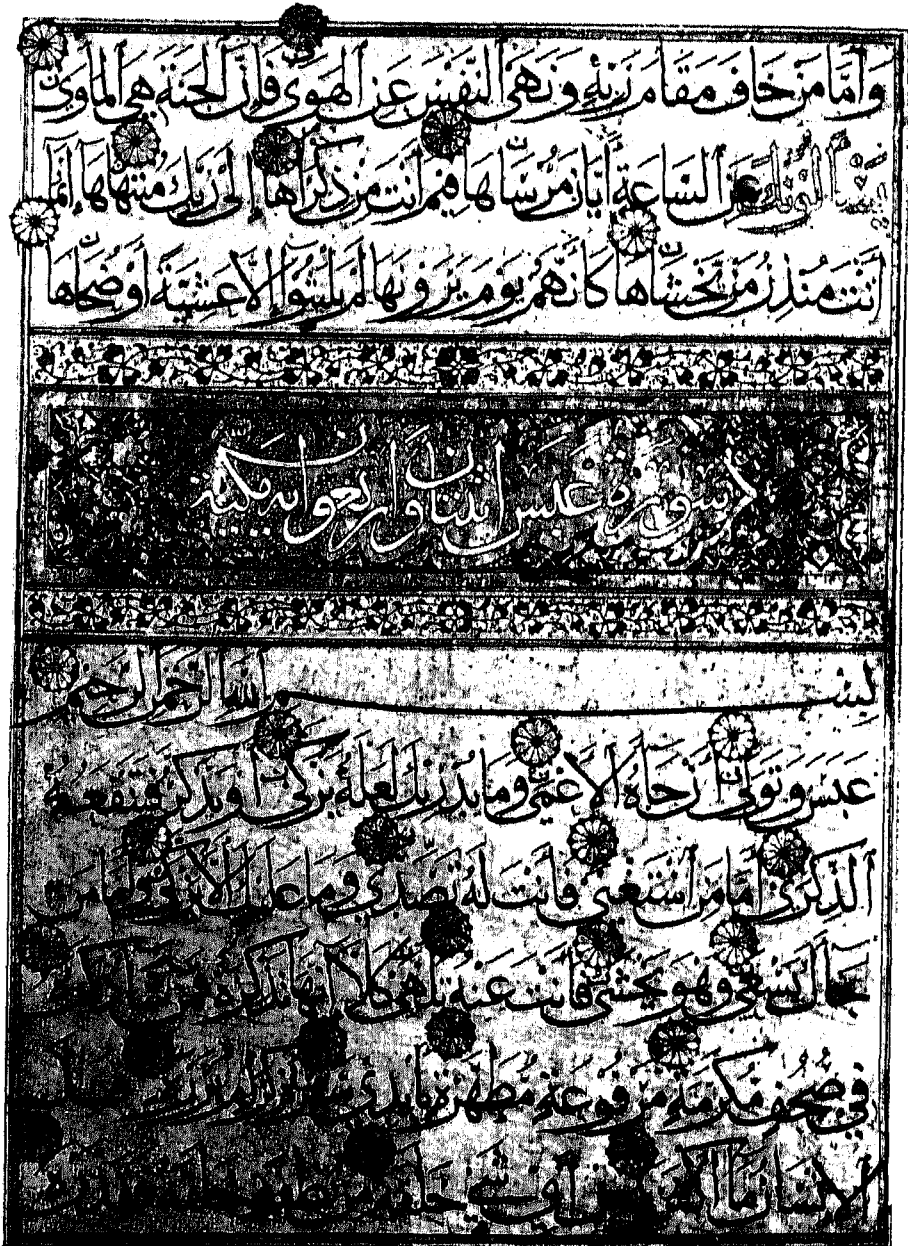 وَأَمَّا مَنْ خَافَ مَقَامَ رَبِّهِ وَنَهَى ٱلنَّفْسَ عَنِ ٱلْهَوَى فَإِنَّ ٱلْجَنَّةَ هِيَ ٱلْمَأْوَى
يَسْأَلُونَكَ عَنِ ٱلسَّاعَةِ أَيَّانَ مُرْسَاهَا فِيمَ أَنْتَ مِنْ ذِكْرَاهَا إِلَى رَبِّكَ مُنْتَهَاهَا إِنَّمَا
أَنْتَ مُنْذِرُ مَنْ يَخْشَاهَا كَأَنَّهُمْ يَوْمَ يَرَوْنَهَا لَمْ يَلْبَثُوا إِلَّا عَشِيَّةً أَوْ ضُحَاهَا
سورة عبس اثنتان واربعون اية مكية
بِسْمِ ٱللَّهِ ٱلرَّحْمَنِ ٱلرَّحِيمِ
عَبَسَ وَتَوَلَّى أَنْ جَاءَهُ ٱلْأَعْمَى وَمَا يُدْرِيكَ لَعَلَّهُ يَزَّكَّى أَوْ يَذَّكَّرُ فَتَنْفَعَهُ
ٱلذِّكْرَى أَمَّا مَنِ ٱسْتَغْنَى فَأَنْتَ لَهُ تَصَدَّى وَمَا عَلَيْكَ أَلَّا يَزَّكَّى وَأَمَّا مَنْ
جَاءَكَ يَسْعَى وَهُوَ يَخْشَى فَأَنْتَ عَنْهُ تَلَهَّى كَلَّا إِنَّهَا تَذْكِرَةٌ فَمَنْ شَاءَ ذَكَرَهُ
فِي صُحُفٍ مُكَرَّمَةٍ مَرْفُوعَةٍ مُطَهَّرَةٍ بِأَيْدِي سَفَرَةٍ كِرَامٍ بَرَرَةٍ
ٱلْإِنْسَانُ مَا أَكْفَرَهُ مِنْ أَيِّ شَيْءٍ خَلَقَهُ مِنْ نُطْفَةٍ خَلَقَهُ